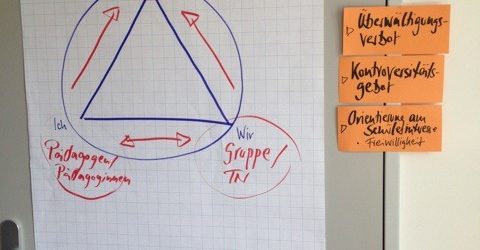 Ich
Pädagogen/
Pädagoginnen
Wir
Gruppe/
TN
Überwältigungs-
verbot
Kontroversitäts-
gebot
Orientierung am
Schülerinteresse
• Freiwilligkeit